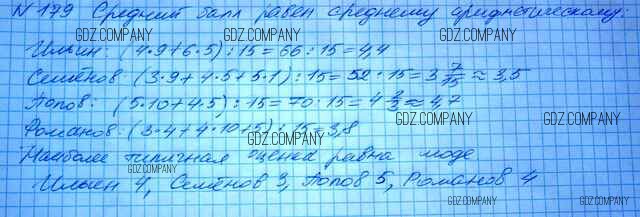 N 179 Средний балл равен среднему арифметическому:
GDZ.COMPANY GDZ.COMPANY GDZ.COMPANY
Ильин: (4·9+6·5):15=66:15=4,4
Семёнов: (3·9+4·5+5·1):15=52:15=3 7/15≈3,5
GDZ.COMPANY GDZ.COMPANY
Попов: (5·10+4·5):15=70:15=4 2/3≈4,7
GDZ.COMPANY
Романов: (3·4+4·10+5):15=3,8
GDZ.COMPANY
Наиболее типичная оценка равна моде
GDZ.COMPANY GDZ.COMPANY
Ильин 4, Семёнов 3, Попов 5, Романов 4
GDZ.COMPANY